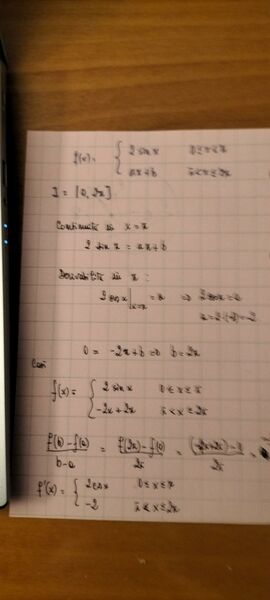 f(x) = { 2 sin x   0 ≤ x ≤ π
ax + b   π < x ≤ 2π
I = [0, 2π]
Continuità in x = π
2 sin π = aπ + b
Derivabilità in π :
2 cos x |x=π = a ⇒ 2 cos π = a
a = 2·(-1) = -2
0 = -2π + b ⇒ b = 2π
Così
f(x) = { 2 sin x   0 ≤ x ≤ π
-2x + 2π   π < x ≤ 2π
f(b) - f(a) / b - a = f(2π) - f(0) / 2π = (-2x + 2π) - 0 / 2π =
f'(x) = { 2 cos x   0 ≤ x ≤ π
-2   π < x ≤ 2π